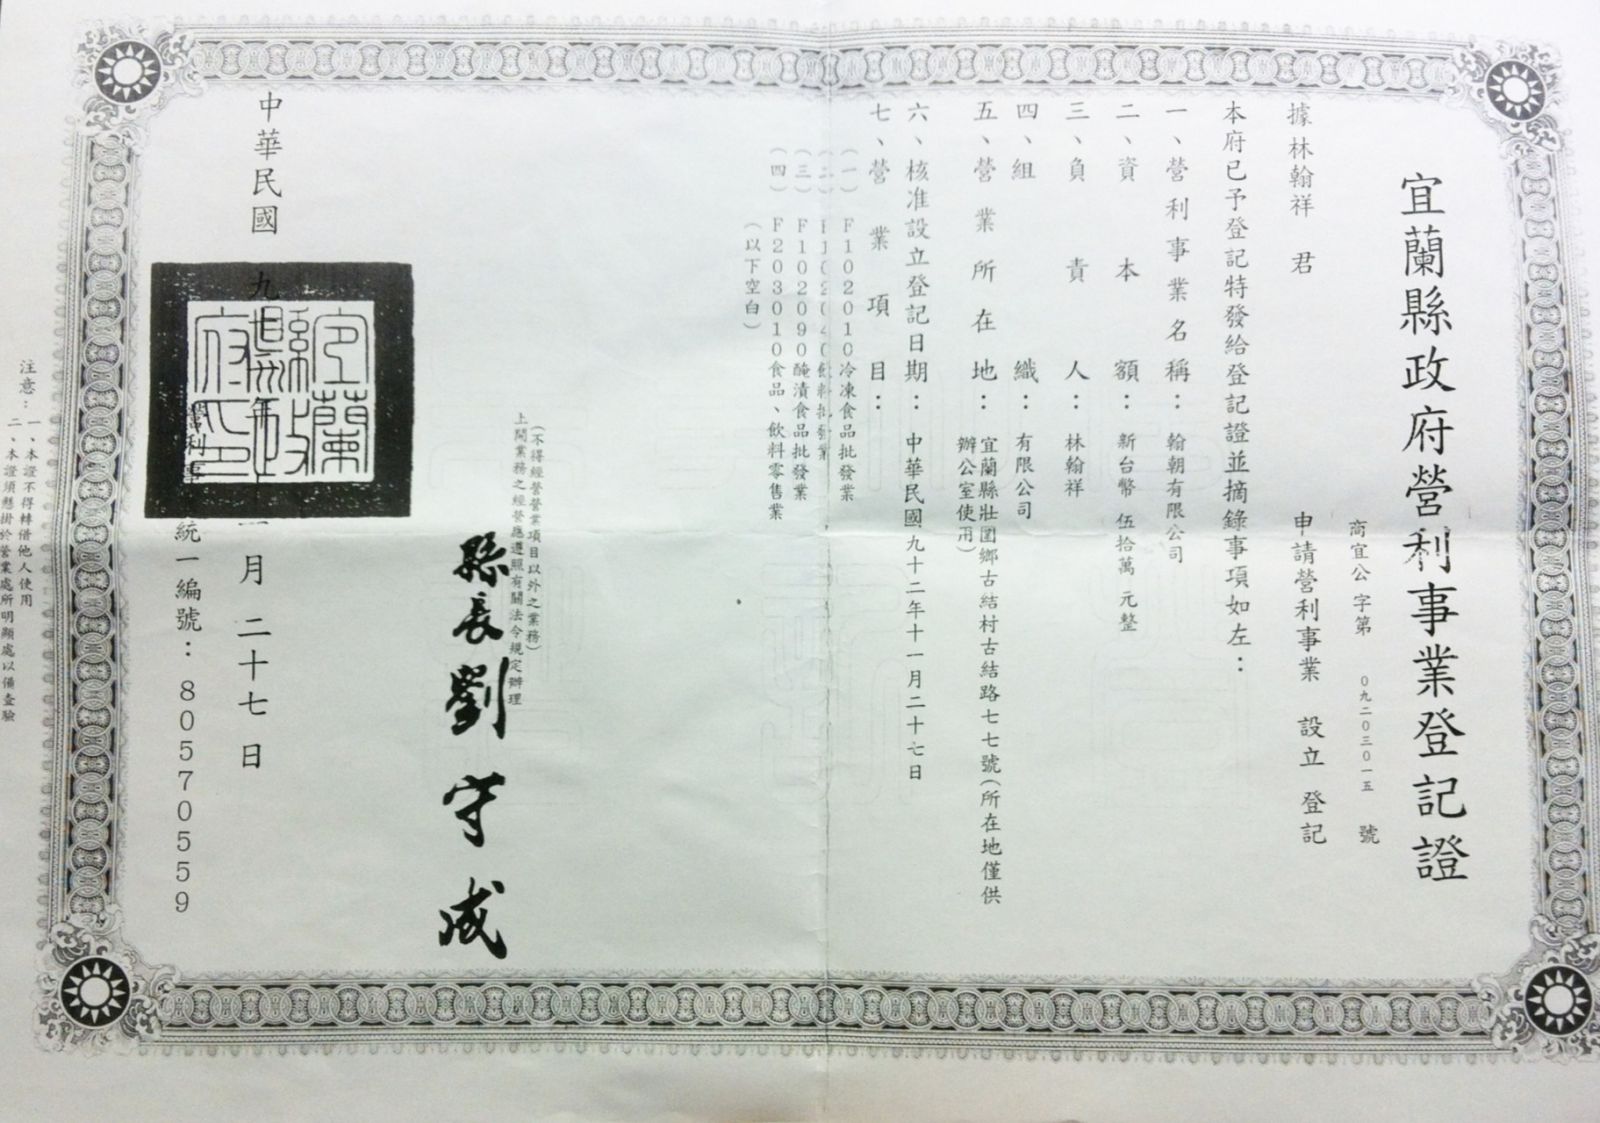 宜蘭縣政府營利事業登記證
商宜公字第 ０九二０三０一五 號
據林翰祥 君 申請營利事業 設立 登記
本府已予登記特發給登記證並摘錄事項如左：
一、營利事業名稱：翰朝有限公司
二、資本額：新台幣 伍拾萬 元整
三、負責人：林翰祥
四、組織：有限公司
五、營業所在地：宜蘭縣壯圍鄉古結村古結路七七號（所在地僅供
辦公室使用）
六、核准設立登記日期：中華民國九十二年十一月二十七日
七、營業項目：
（一） F102010冷凍食品批發業
（二） F102040飲料批發業
（三） F102090醃漬食品批發業
（四） F203010食品、飲料零售業
（以下空白）
（不得經營營業項目以外之業務）
上開業務之經營應遵照有關法令規定辦理
縣長劉守成
中華民國 九 年 一月二十七日
宜蘭縣政府印
營利事 統一編號：80570559
注意：一、本證不得轉借他人使用
二、本證須懸掛於營業處所明顯處以備查驗